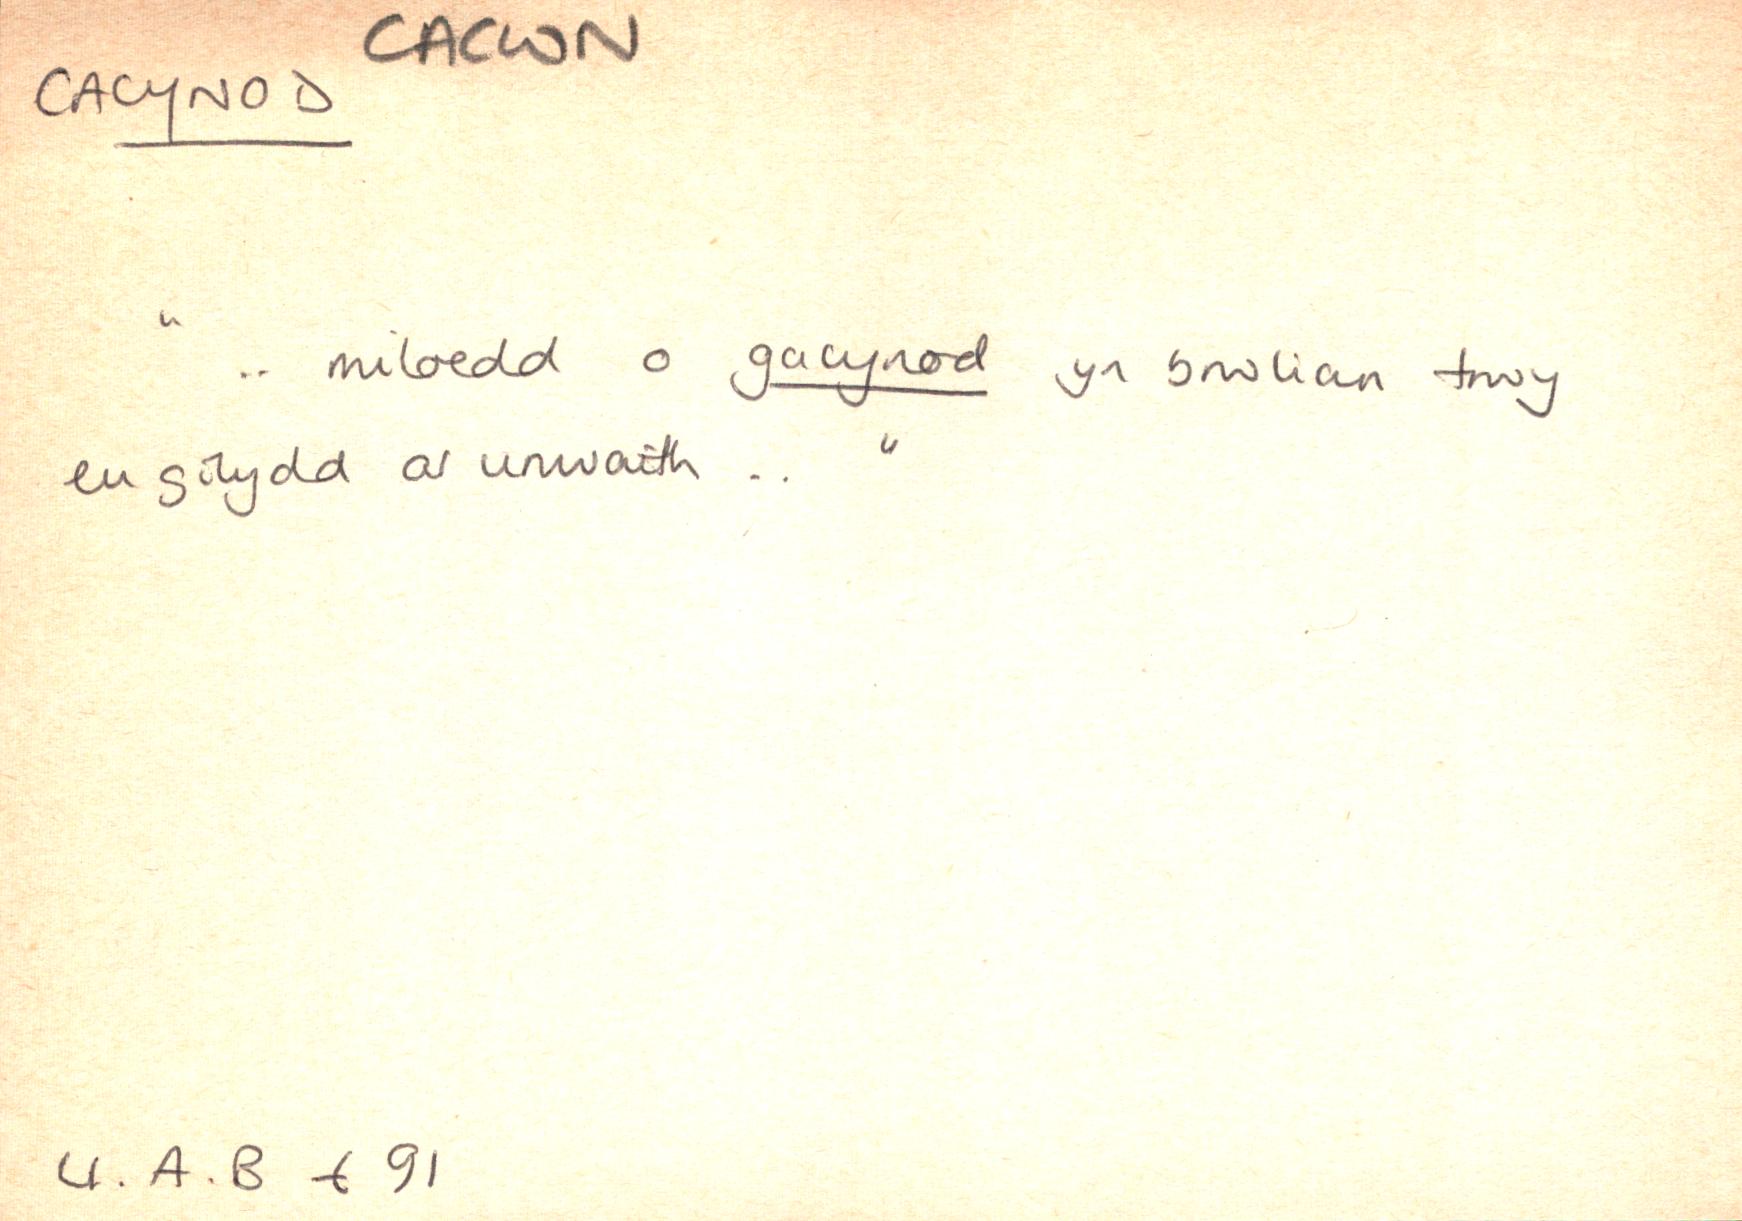 CACWN
CACYNOD
" .. miloedd o gacynod yn brwlian trwy
eu gilydd ar unwaith .. "
U.A.B t 91